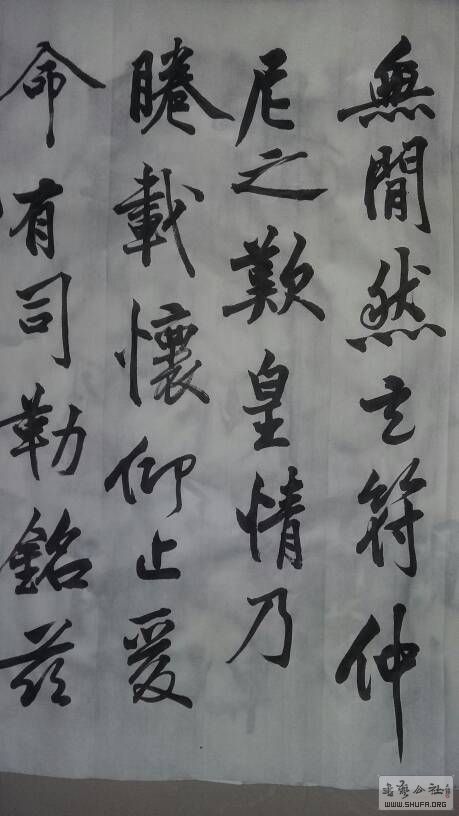 無閒然玄符仲
尼之歎皇情乃
睠載懷仰止爰
命有司勒銘茲
書藝公社
WWW.SHUFA.ORG